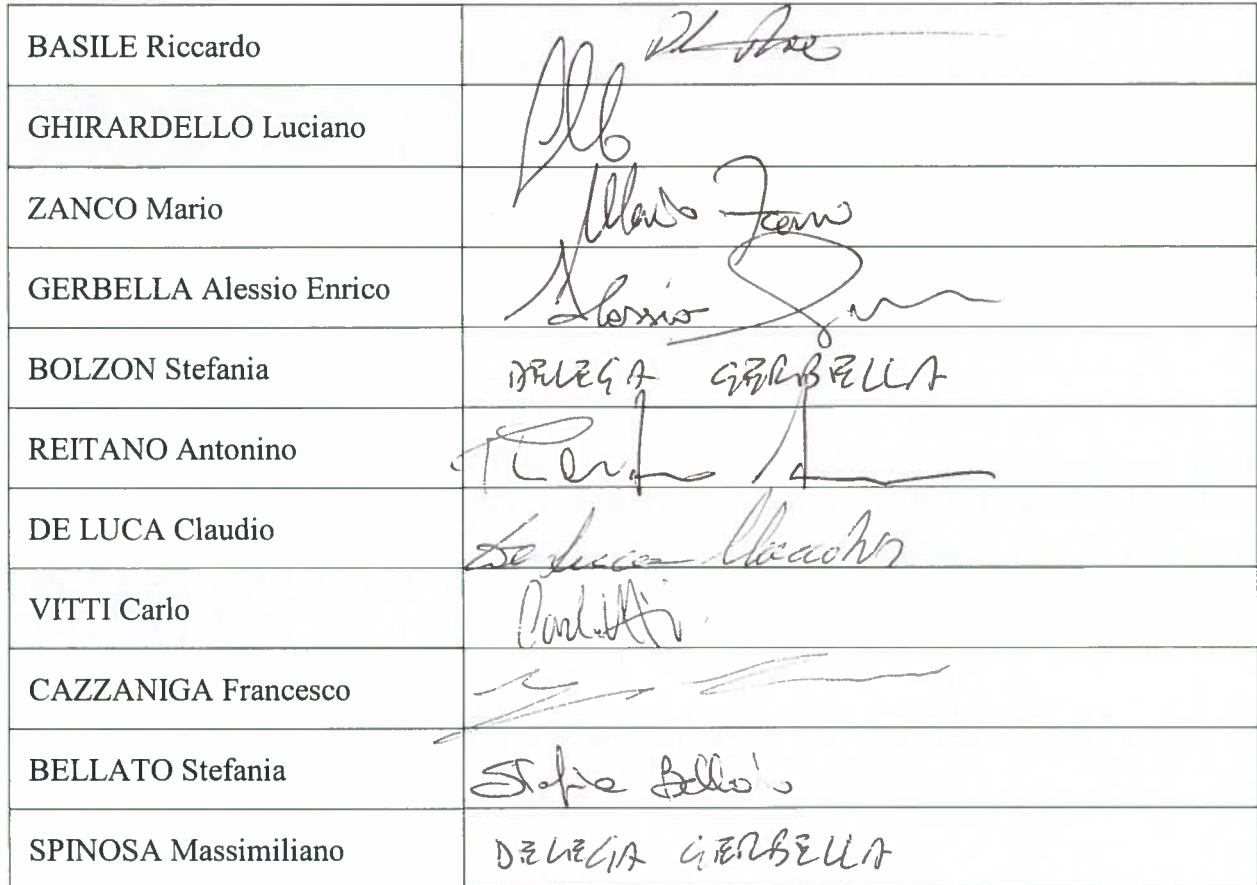 BASILE Riccardo
GHIRARDELLO Luciano
ZANCO Mario
Mario Zanco
GERBELLA Alessio Enrico
Alessio
BOLZON Stefania
DELEGA GERBELLA
REITANO Antonino
DE LUCA Claudio
De Luca Claudio
VITTI Carlo
Carlo Vitti
CAZZANIGA Francesco
BELLATO Stefania
Stefania Bellato
SPINOSA Massimiliano
DELEGA GERBELLA